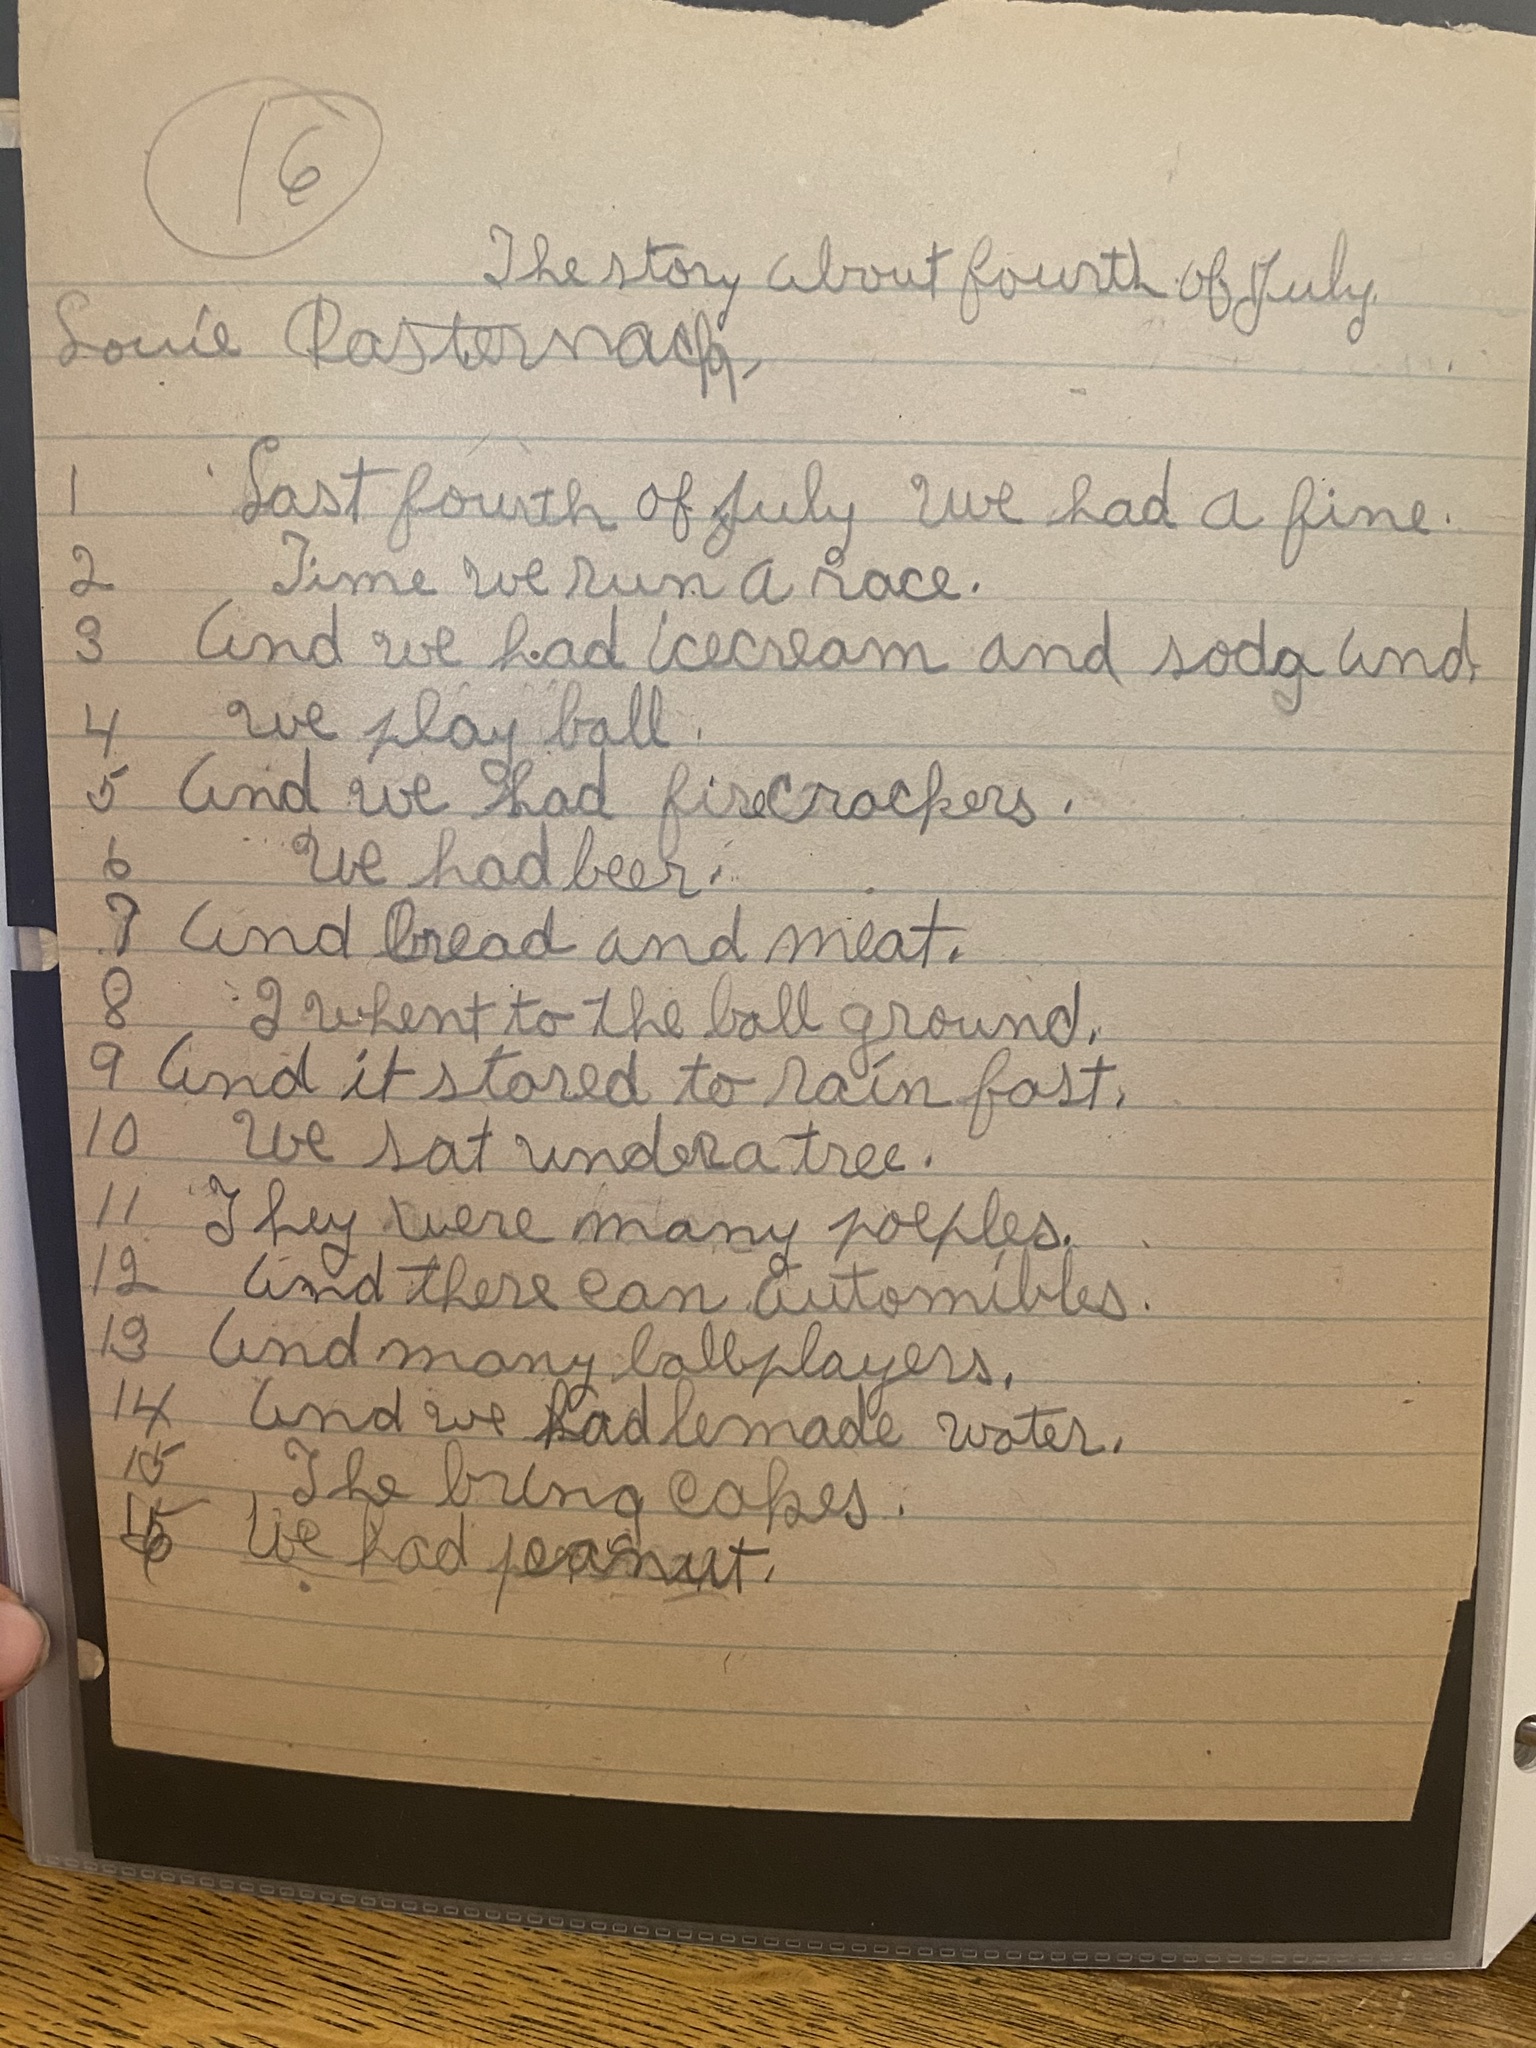 16
The story about fourth of July.
Louie Pasternack.
1 Last fourth of July we had a fine.
2 Time we run a race.
3 And we had icecream and soda and
4 we play ball.
5 And we had firecrackers.
6 We had beer.
7 And bread and meat.
8 I whent to the ball ground.
9 And it stared to rain fast.
10 We sat under a tree.
11 They were many poeples.
12 And there can automibles.
13 And many ballplayers.
14 And we had lemade water.
15 The bring cakes.
16 We had peanut.